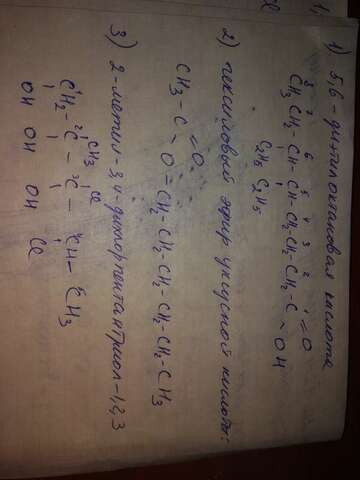 1) 5,6-диэтилоктановая кислота
8 7 6 5 4 3 2 1
CH3 CH2-CH-CH-CH2-CH2-CH2-C =O
OH
C2H5 C2H5
2) гексиловый эфир уксусной кислоты:
CH3-C =O
O-CH2-CH2-CH2-CH2-CH2-CH3
3) 2-метил-3,4-дихлорпентантриол-1,2,3
CH3 Cl
1 2 3 4 5
CH2-C-C-CH-CH3
OH OH OH Cl